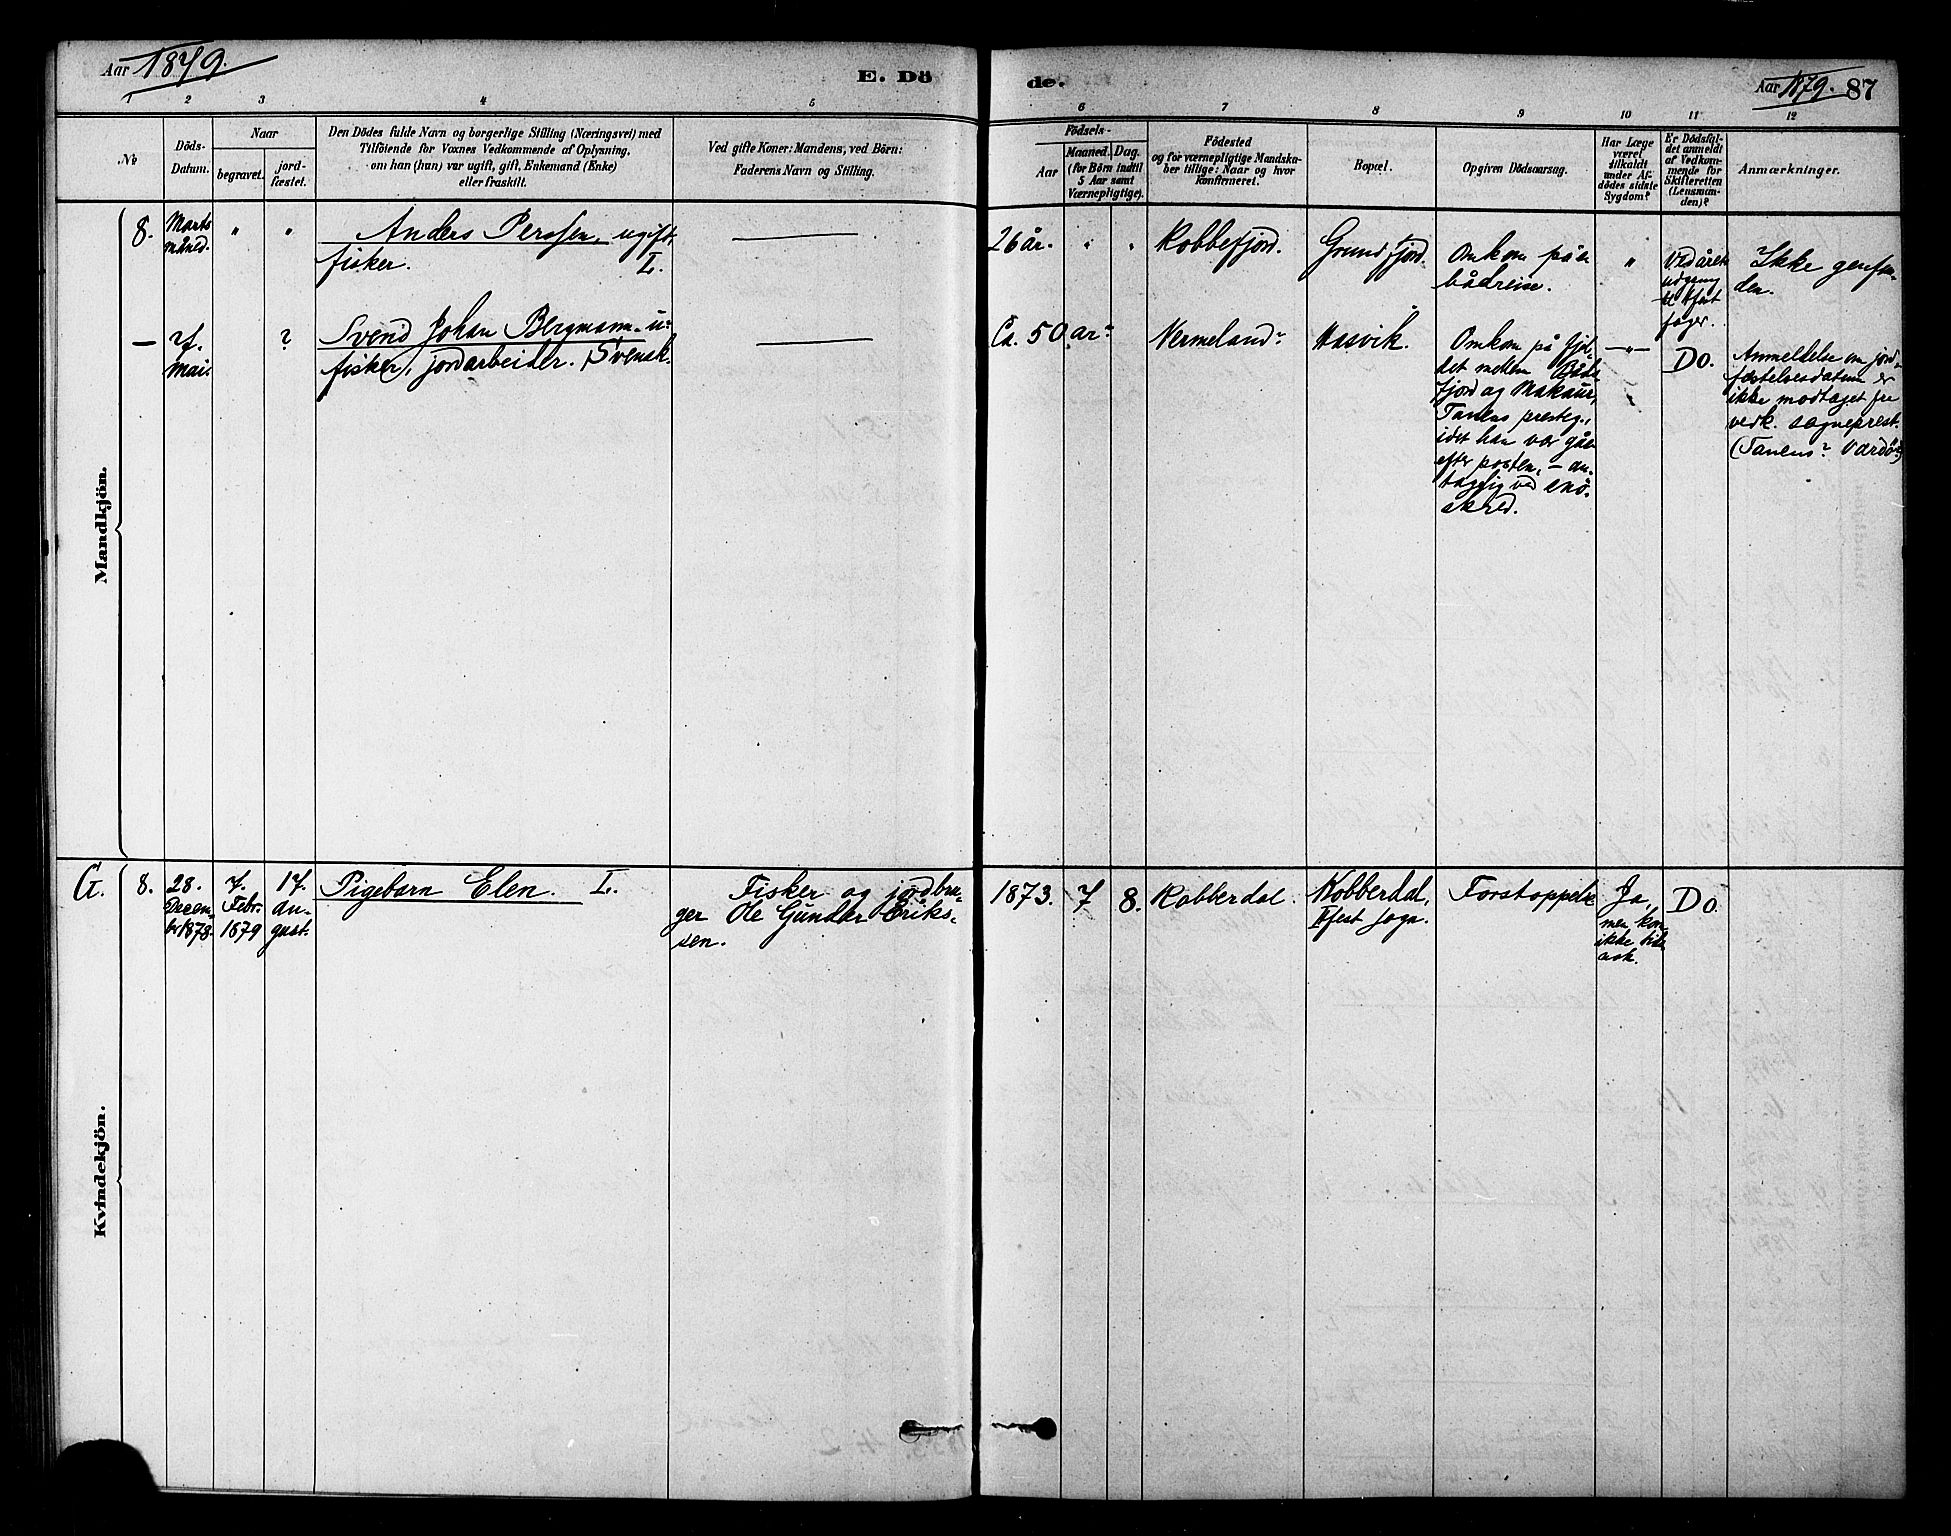 Aar 1879.
E. Dö
de.
Aar 1879. 87
1 2 3 4 5 6 7 8 9 10 11 12
No
Döds-
Datum.
Naar
begravet.
jord-
fæstet.
Den Dödes fulde Navn og borgerlige Stilling (Næringsvei) med
Tilföiende for Voxnes Vedkommende af Oplysning,
om han (hun) var ugift, gift, Enkemand (Enke)
eller fraskilt.
Ved gifte Koner: Mandens, ved Börn:
Faderens Navn og Stilling.
Födsels-
Aar
Maaned. Dag.
(for Börn indtil
5 Aar samt
Værnepligtige).
Födested
og for værnepligtige Mandska-
ber tillige: Naar og hvor
konfirmeret.
Bopæl.
Opgiven Dödsaarsag.
Har Læge
været
tilkaldt
under Af-
dödes sidste
Sygdom?
Er Dödsfal-
det anmeldt
af Vedkom-
mende for
Skifteretten
(Lensman-
den)?
Anmærkninger.
Mandkjön.
8.
Marts
måned.
"
"
Anders Perssen, ugift,
fisker. L.
26 år.
"
"
Kobbefjord.
Grundfjord.
Omkom på en
bådreise.
"
Ved årets
udgang
til Hfest
foger.
Ikke genfun-
den.
—
7.
Mai.
?
Svend Johan Bergmann. u:
fisker, jordarbeider. Svensk.
Ca. 50 år?
Vermeland?
Hasvik.
Omkom på fjel-
det mellem Båds-
fjord og Makaur,
Tanens presteg.,
idet han var gået
efter posten, – an-
tagelig ved snö-
skred.
—"—
Do.
Anmeldelse om jord-
fæstelsesdatum er
ikke modtaget fra
vedk. sogneprest.
(Tanens? Vardö?)
Kvindekjön.
G.
8.
28.
Decem-
br 1878.
7.
Febr.
1879
17.
au-
gust.
Pigebarn Elen. L.
Fisker og jordbru-
ger Ole Gunder Eriks-
sen.
1873. 7 8.
Kobberdal.
Kobberdal,
Hfest sogn.
Forstoppelse
Ja,
men kom
ikke
Do.